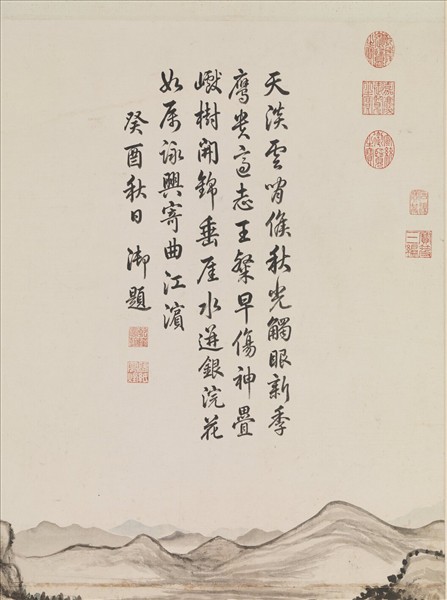 天淡雲峭候秋光觸眼新季
鷹貴適志王粲早傷神疊
巘樹開錦垂厓水迸銀浣花
如屬詠興寄曲江濱
癸酉秋日御題